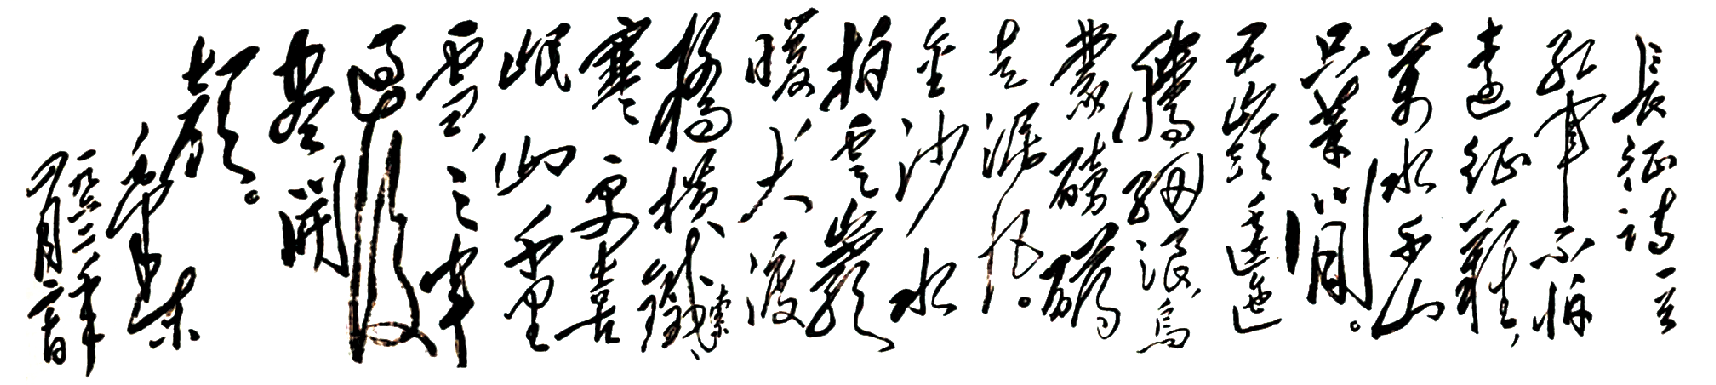 長征詩一首
紅軍不怕
遠征難,
萬水千山
只等閒。
五嶺逶迤
騰細浪,烏
蒙磅礴
走泥丸。
金沙水
拍雲巖
暖大渡
橋橫鐵索
寒更喜
岷山千里
雪,三軍
過後
盡開
顏。
毛澤東
一九六二年
四月二十日